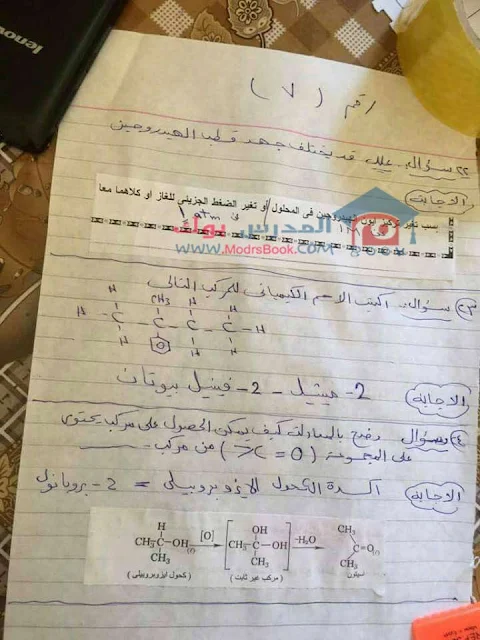 lenovo
رقم ( ٧ )
٢٢ سؤال علل قد يختلف جهد قطب الهيدروجين
الاجابة
بسبب تغير تركيز ايون الهيدروجين فى المحلول او تغير الضغط الجزيئى للغاز او كلاهما معا
المدرس بوك
www.ModrsBook.com
٢٣ سؤال اكتب الاسم الكيميائى للمركب التالى
H CH3 H H
H - C - C - C - C - H
H H H
الاجابة 2- ميثيل - 2 - فينيل بيوتان
٢٤ سؤال وضح بالمعادلات كيف يمكن الحصول على مركب يحتوى
على المجموعة ( >C = O ) من مركب
الاجابة اكسدة الكحول الايزوبروبيلى = 2 - بروبانول
H
CH3-C-OH(l) [O] CH3-C-OH -H2O CH3 C=O(l) CH3
CH3 OH CH3
(كحول ايزوبروبيلى) (مركب غير ثابت) اسيتون